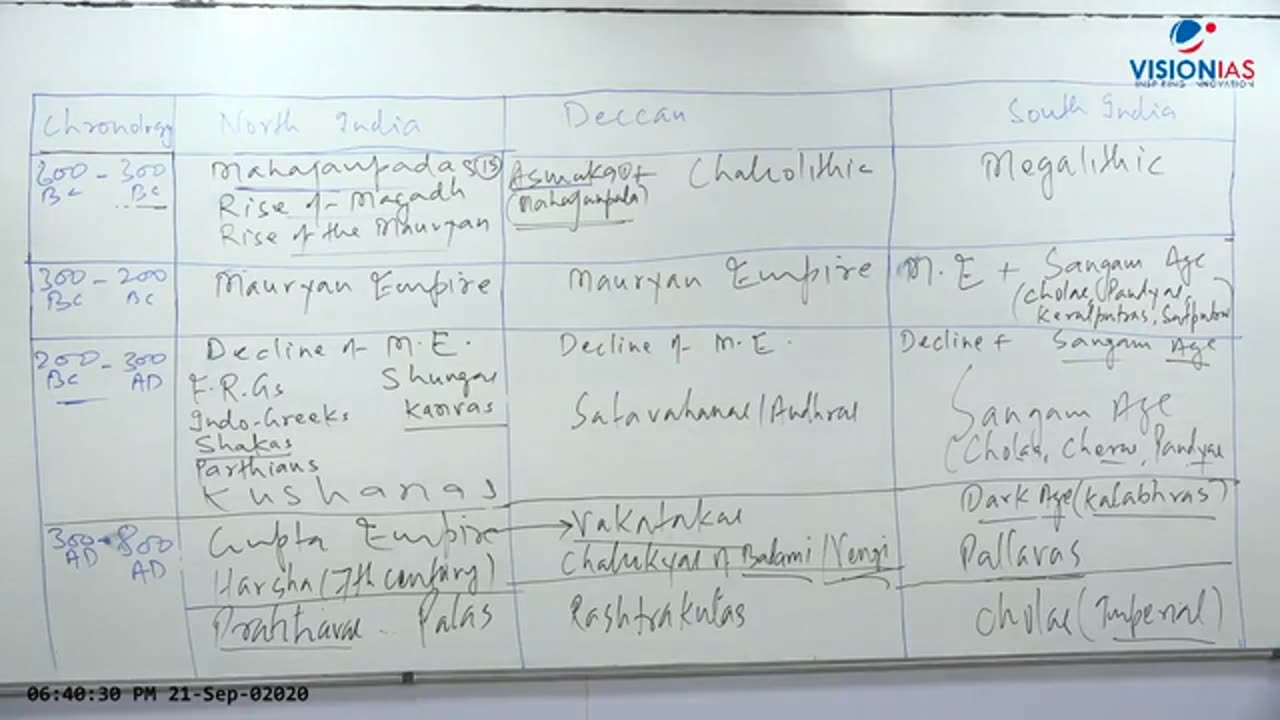 VISIONIAS
INSPIRING INNOVATION
Chronology North India Deccan South India
600 - 300 Mahajanpadas (15) Asmaka + Chalcolithic Megalithic
BC BC Rise of Magadh (Mahajanpada)
Rise of the Mauryan
300 - 200 Mauryan Empire Mauryan Empire M.E + Sangam Age
BC BC (Cholas, Pandyas,
Keralputras, Satputras)
200 - 300 Decline of M.E. Decline of M.E. Decline + Sangam Age
BC AD F.R.Gs Shungas
Indo-Greeks Kanvas Satavahanas/Andhras Sangam Age
Shakas (Cholas, Cheras, Pandyas
Parthians
Kushanas Dark Age (Kalabhras)
300 - 800 Gupta Empire → Vakatakas
AD AD Harsha (7th century) Chalukyas of Badami/Vengi Pallavas
Pratiharas .. Palas Rashtrakutas Cholas (Imperial)
06:40:30 PM 21-Sep-02020